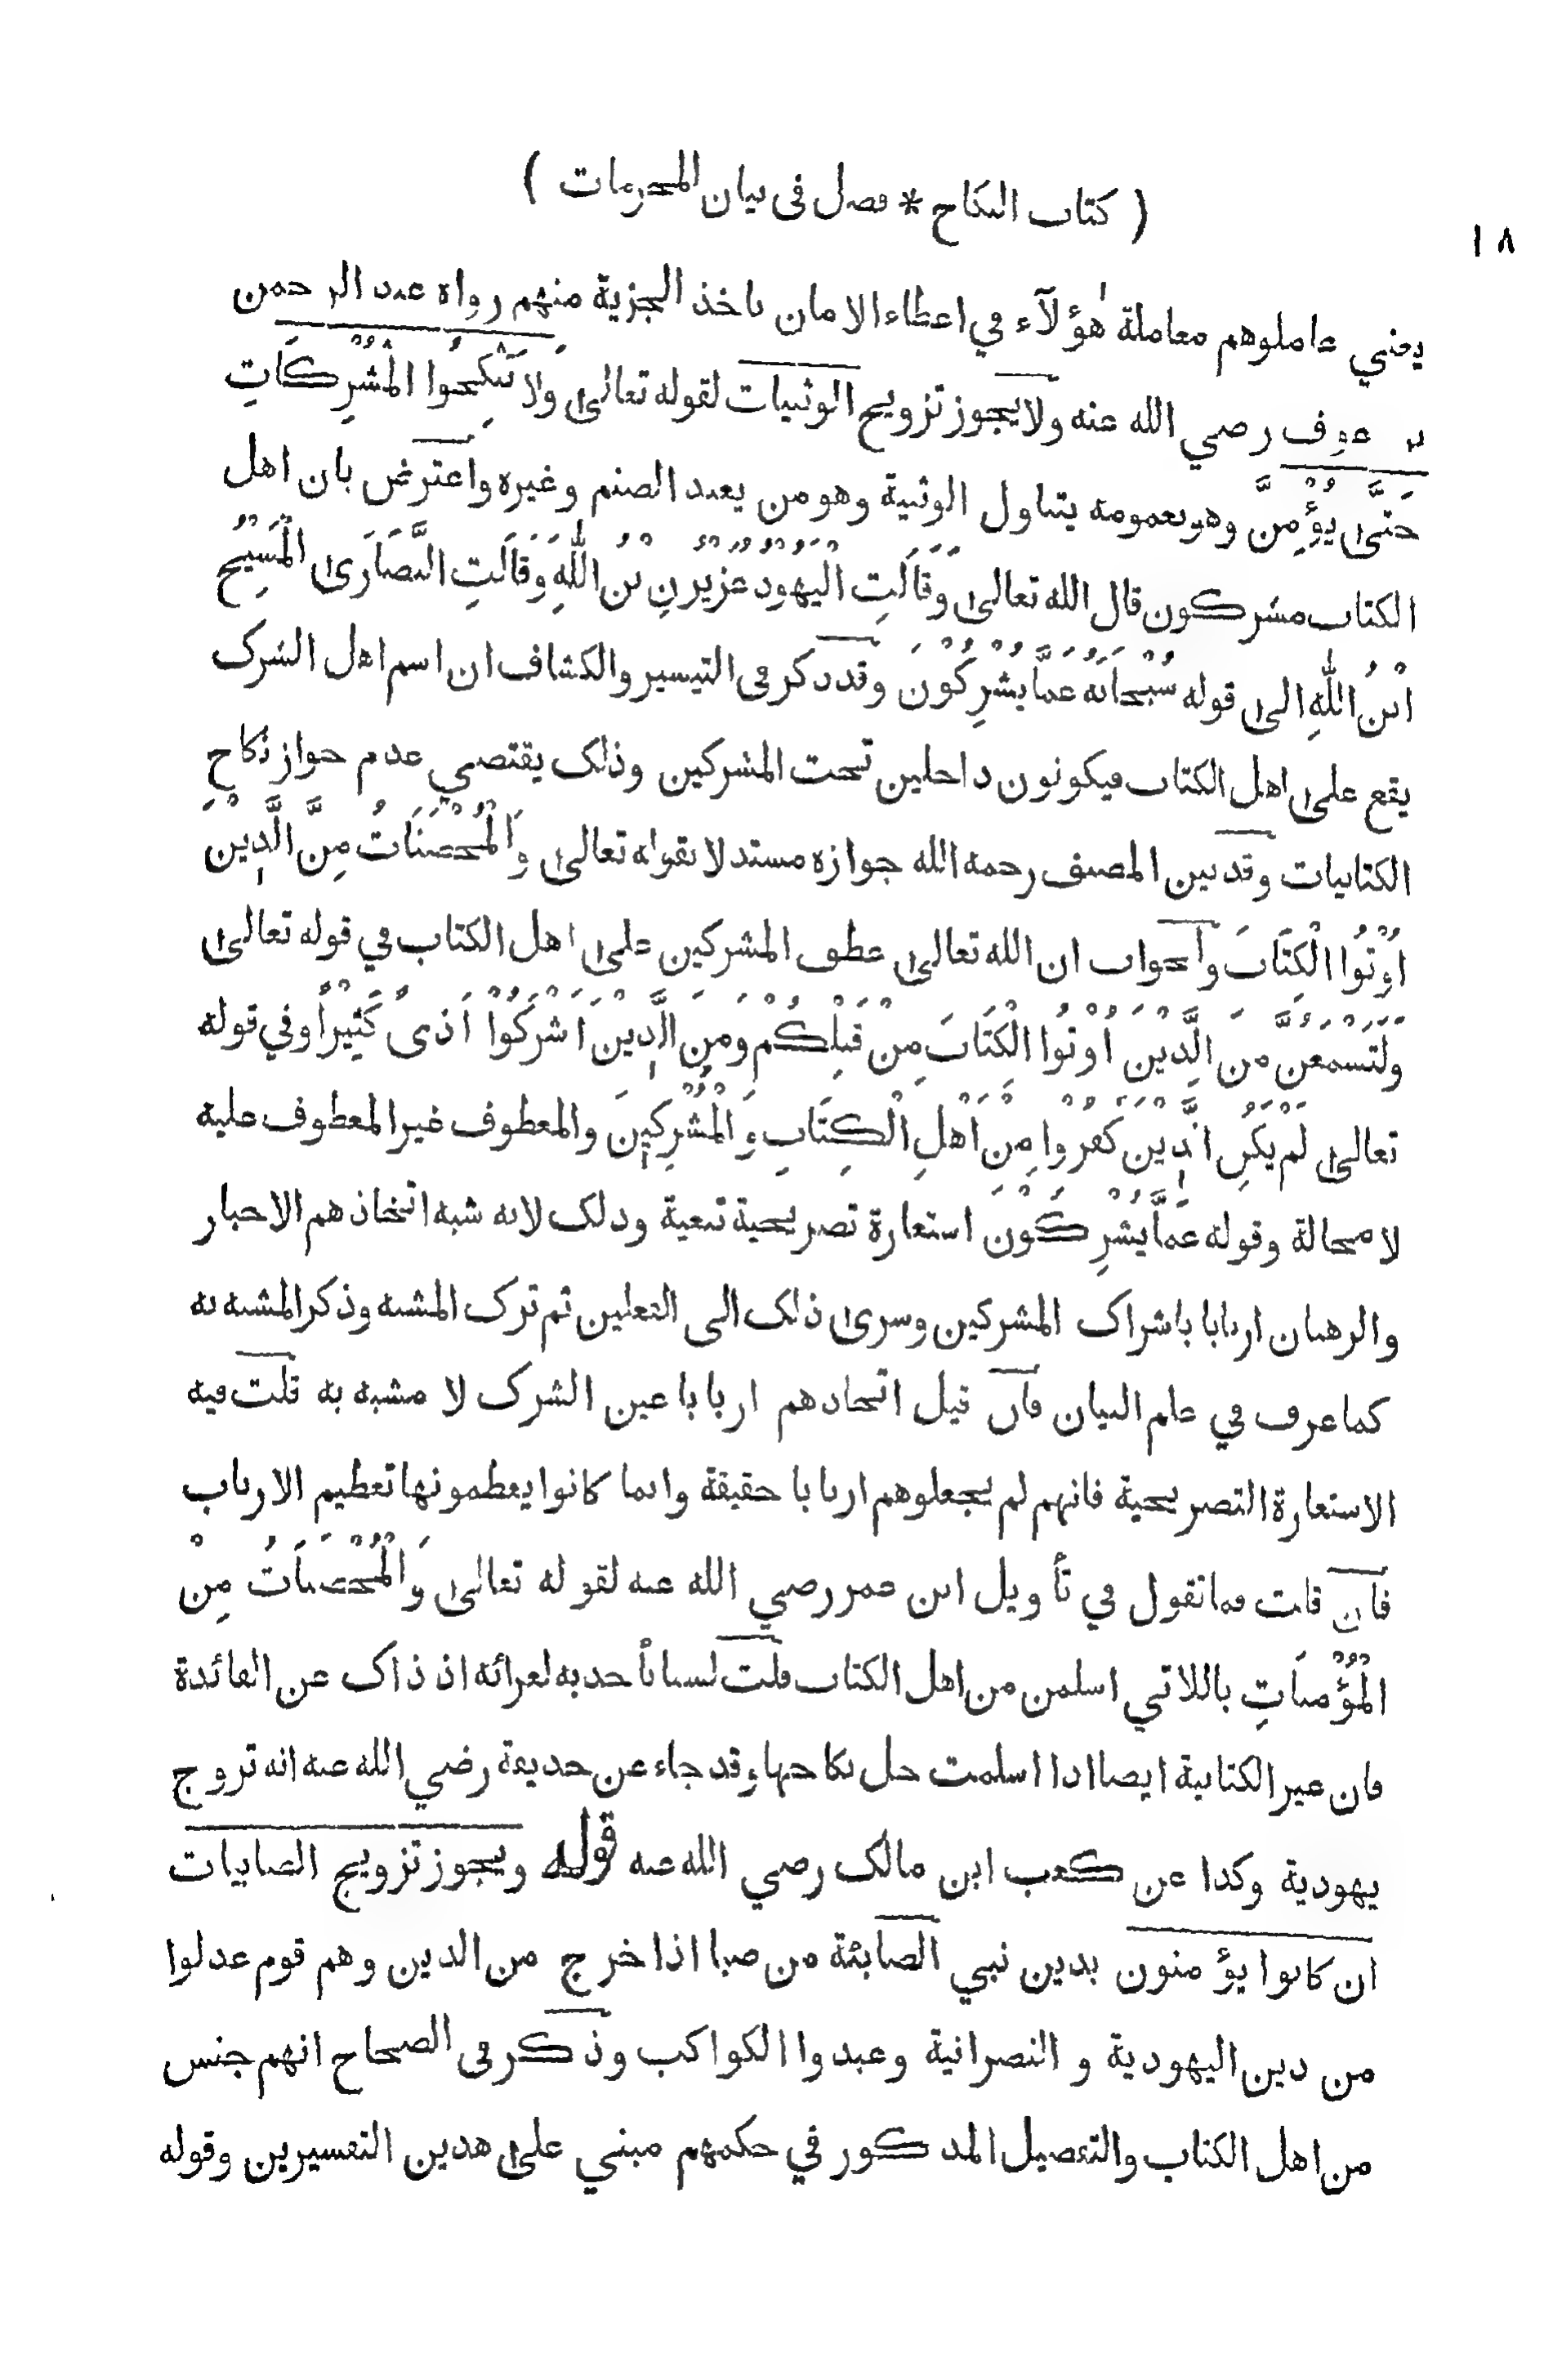 ( كتاب النكاح * فصل فى بيان المحرمات )
١٨
يعني عاملوهم معاملة هٰؤلآء في اعطاء الامان باخذ الجزية منهم رواه عبد الرحمن
بن عوف رضي الله عنه ولا يجوز تزويج الوثنيات لقوله تعالىٰ وَلَا تَنْكِحُوا الْمُشْرِكَاتِ
حَتّٰى يُؤْمِنَّ وهو بعمومه يتناول الوثنية وهو من يعبد الصنم وغيره واعترض بان اهل
الكتاب مشركون قال الله تعالىٰ وَقَالَتِ الْيَهُوْدُ عُزَيْرُنِ بْنُ اللّٰهِ وَقَالَتِ النَّصَارَىٰ الْمَسِيْحُ
ابْنُ اللّٰهِ الىٰ قوله سُبْحَانَهُ عَمَّا يُشْرِكُوْنَ وقد ذكر في التيسير والكشاف ان اسم اهل الشرك
يقع علىٰ اهل الكتاب فيكونون داخلين تحت المشركين وذلك يقتضي عدم جواز نكاح
الكتابيات وقد بين المصنف رحمه الله جوازه مستدلا بقوله تعالىٰ وَالْمُحْصَنَاتُ مِنَ الَّذِيْنَ
اُوْتُوا الْكِتَابَ والجواب ان الله تعالىٰ عطف المشركين علىٰ اهل الكتاب في قوله تعالىٰ
وَلَتَسْمَعُنَّ مِنَ الَّذِيْنَ اُوْتُوا الْكِتَابَ مِنْ قَبْلِكُمْ وَمِنَ الَّذِيْنَ اَشْرَكُوْا اَذىً كَثِيْراً وفي قوله
تعالىٰ لَمْ يَكُنِ الَّذِيْنَ كَفَرُوْا مِنْ اَهْلِ الْكِتَابِ وَالْمُشْرِكِيْنَ والمعطوف غير المعطوف عليه
لا محالة وقوله عَمَّا يُشْرِكُوْنَ استعارة تصريحية تبعية وذلك لانه شبه اتخاذهم الاحبار
والرهبان اربابا باشراك المشركين وسرىٰ ذلك الى الفعلين ثم ترك المشبه وذكر المشبه به
كما عرف في علم البيان فان قيل اتخاذهم اربابا عين الشرك لا مشبه به قلت فيه
الاستعارة التصريحية فانهم لم يجعلوهم اربابا حقيقة وانما كانوا يعظمونها تعظيم الارباب
فان قلت فما تقول في تأويل ابن عمر رضي الله عنه لقوله تعالىٰ وَالْمُحْصَنَاتُ مِنْ
الْمُؤْمِنَاتِ باللاتي اسلمن من اهل الكتاب قلت لسنا نأخذ به لعرائه اذ ذاك عن الفائدة
فان غير الكتابية ايضا اذا اسلمت حل نكاحها وقد جاء عن حذيفة رضي الله عنه انه تزوج
يهودية وكذا عن كعب ابن مالك رضي الله عنه قوله ويجوز تزويج الصابيات
ان كانوا يؤمنون بدين نبي الصابئة من صبا اذا خرج من الدين وهم قوم عدلوا
من دين اليهودية و النصرانية وعبدوا الكواكب وذكر في الصحاح انهم جنس
من اهل الكتاب والتفصيل المذكور في حكمهم مبني علىٰ هذين التفسيرين وقوله